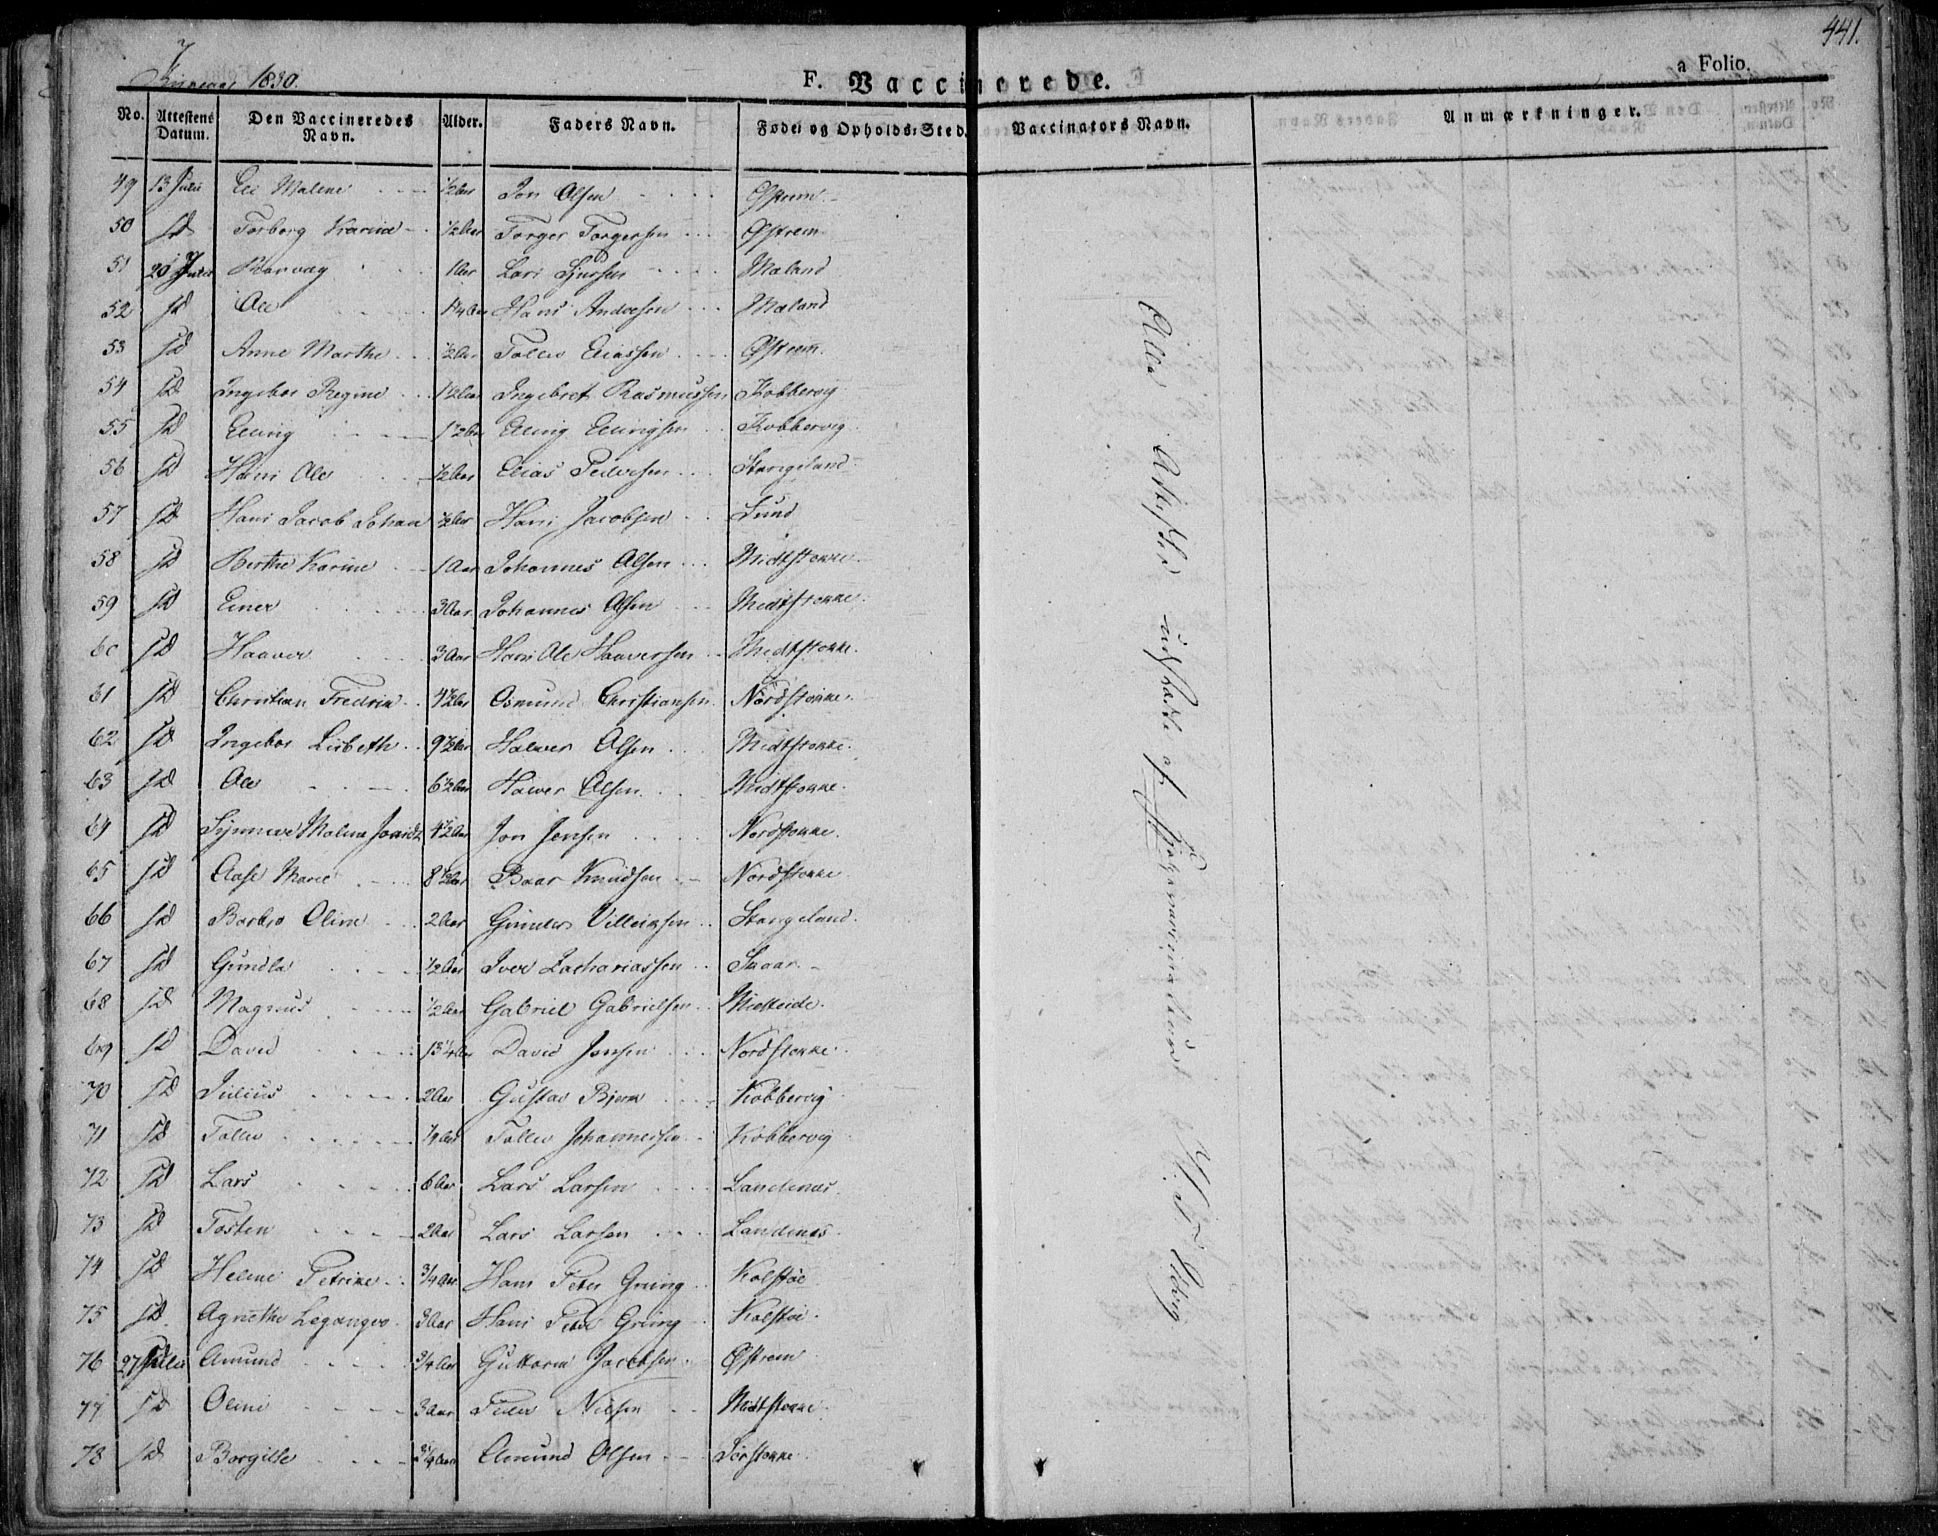 441.
1830.
F. Vaccinerede.
a Folio.
No. Attestens Datum. Den Vaccineredes Navn. Alder. Faders Navn. Føde: og Opholds: Sted. Vaccinators Navn. Anmærkninger.
49 13 Juli Malene ½ Aar Jon Olsen Østrem
50 sd Torborg Karine ½ Aar Torger Torgersen Østrem
51 26 Juli 1 Aar Lars Maland
52 sd Ole Hans Andersen Maland
53 sd Anne Marthe ½ Aar Tollev Eliassen Østrem.
54 sd Ingebor Regine 1½ Aar Ingebret Rasmussen Kobbervig
55 sd Elling 1½ Aar Elling Ellingsen Kobbervig
56 sd Hans Ole ½ Aar Elias Pedersen Stangeland
57 sd Hans Jacob Johan ½ Aar Hans Jacobsen Lund
58 sd Berthe Karine 1 Aar Johannes Olsen Midtstokke
59 sd Einer 3 Aar Johannes Olsen Midtstokke
60 sd Haaver 3 Aar Hans Ole Haaversen Midtstokke.
61 sd Christian Fredrik 4½ Aar Osmund Christiansen Nordstokke.
62 sd Ingebor Lisbeth 9½ Aar Halver Olsen Midtstokke.
63 sd Ole 6½ Aar Halver Olsen Midtstokke.
64 sd Malene 4½ Aar Jon Jensen Nordstokke.
65 sd Aase Marie 8½ Aar Baar Knudsen Nordstokke
66 sd Barbro Oline 2 Aar Gunder Villeiksen Stangeland.
67 sd Gundla ½ Aar Iver Zachariassen Snaar
68 sd Magnus ½ Aar Gabriel Gabrielsen
69 sd David David Jensen Nordstokke
70 sd Julius 2 Aar Gustav Bjern Kobbervig
71 sd Tollev Tollev Johannessen Kobbervig
72 sd Lars 6 Aar Lars Larsen Landenes.
73 sd Tosten 2 Aar Lars Larsen Landenes.
74 sd Helene Petrine ¾ Aar Hans Peter Gring Kolstøe
75 sd Agnethe Leganger 3 Aar Hans Peter Gring Kolstøe
76 27 Juli Amund ¾ Aar Guttorm Jacobsen Østrem
77 sd Oline 3 Aar Peder Nilsen Midtstokke
78 sd Borgille Amund Olsen Sørstokke
Alle Attester udstædte af